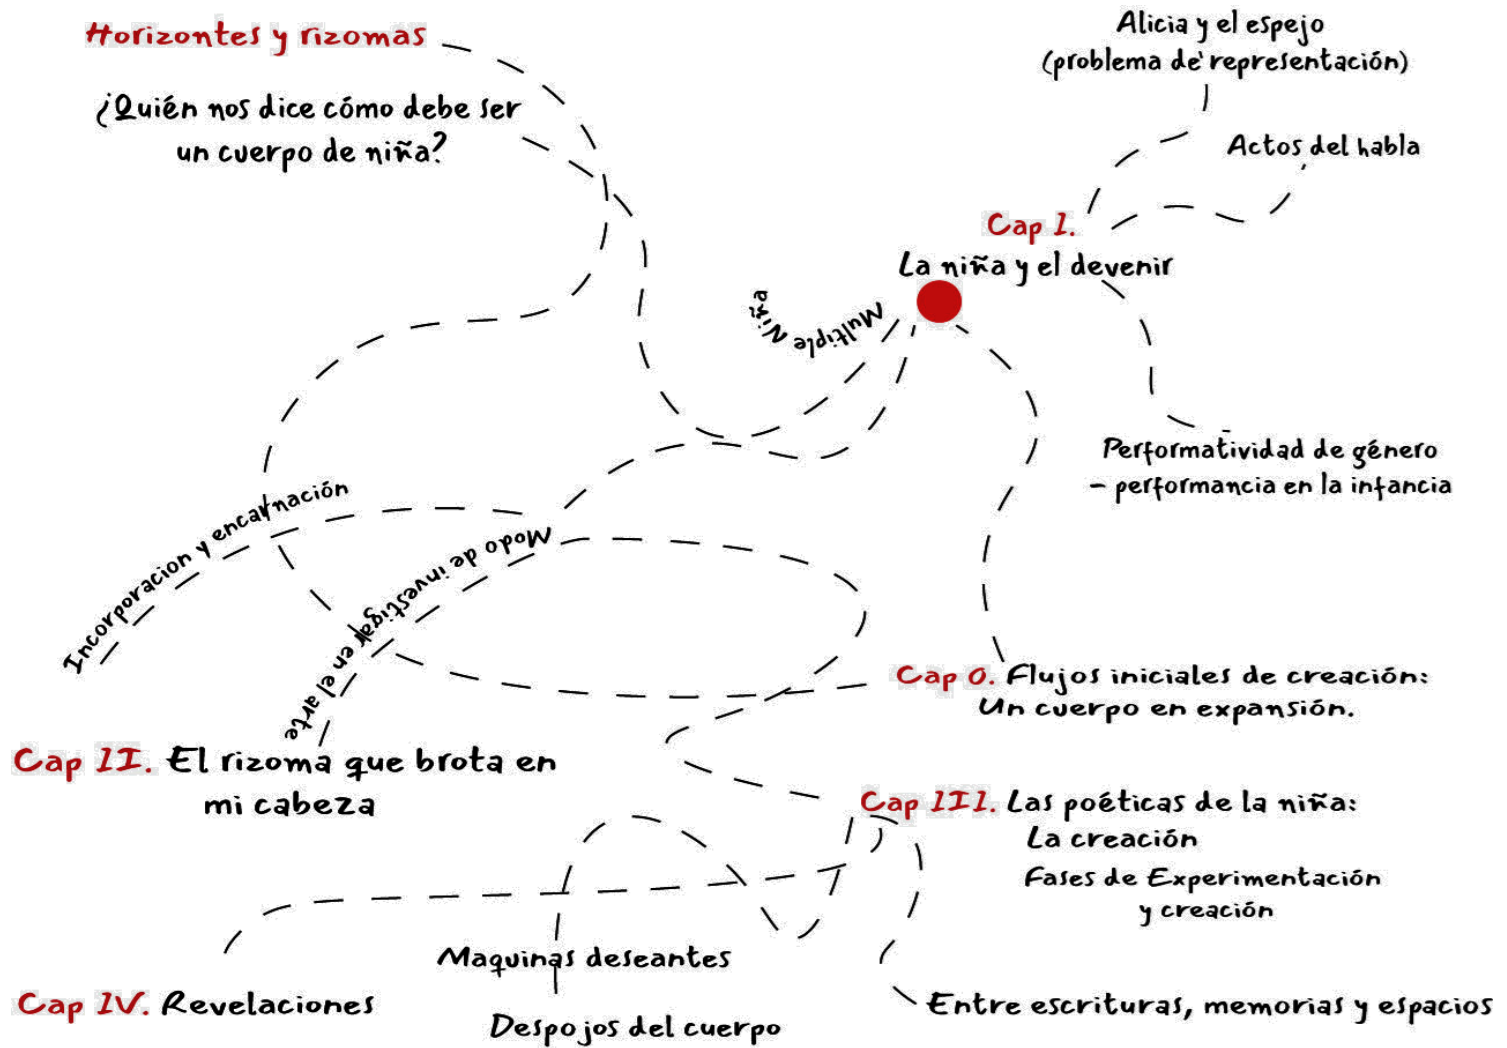 Horizontes y rizomas
¿Quién nos dice cómo debe ser
un cuerpo de niña?
Alicia y el espejo
(problema de representación)
Actos del habla
Cap I.
La niña y el devenir
Multiple Niña
Performatividad de género
- performancia en la infancia
Incorporacion y encarnación
Modo de investigar en el arte
Cap 0. Flujos iniciales de creación:
Un cuerpo en expansión.
Cap II. El rizoma que brota en
mi cabeza
Cap III. Las poéticas de la niña:
La creación
Fases de Experimentación
y creación
Maquinas deseantes
Cap IV. Revelaciones
Despojos del cuerpo
Entre escrituras, memorias y espacios